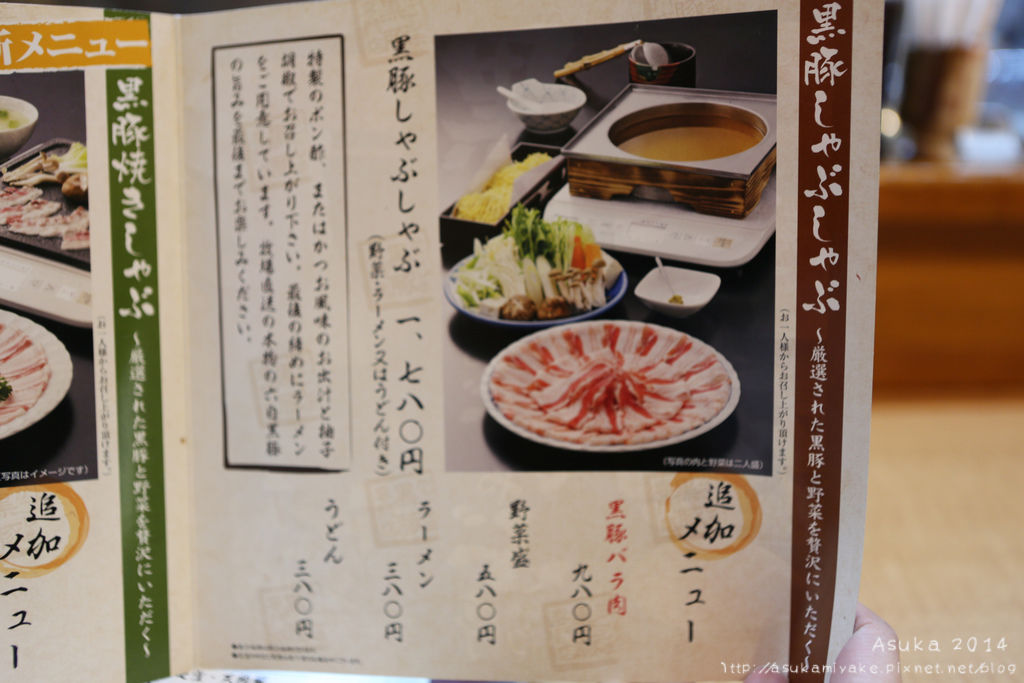 黒豚しゃぶしゃぶ
〜厳選された黒豚と野菜を贅沢にいただく〜
(お一人様からお召し上がり頂けます。)
(写真の肉と野菜は二人盛)
黒豚しゃぶしゃぶ 一、七八〇円
(野菜・ラーメン又はうどん付き)
特製のポン酢、またはかつお風味のお出汁と柚子
胡椒でお召し上がり下さい。最後の締めにラーメン
をご用意しています。牧場直送の本物の六白黒豚
の旨みを最後までお楽しみください。
追加
メニュー
黒豚バラ肉
九八〇円
野菜盛
五八〇円
ラーメン
三八〇円
うどん
三八〇円
新メニュー
黒豚焼きしゃぶ
〜厳選された黒豚と野菜を贅沢にいただく〜
(お一人様からお召し上がり頂けます。)
(写真はイメージです)
追加
メニュー
Asuka 2014
http://asukamiyake.pixnet.net/blog